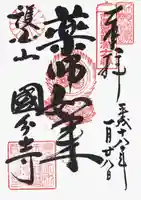 奉拝
平成十八年
一月廿八日
薬師如来
護国山
國分寺